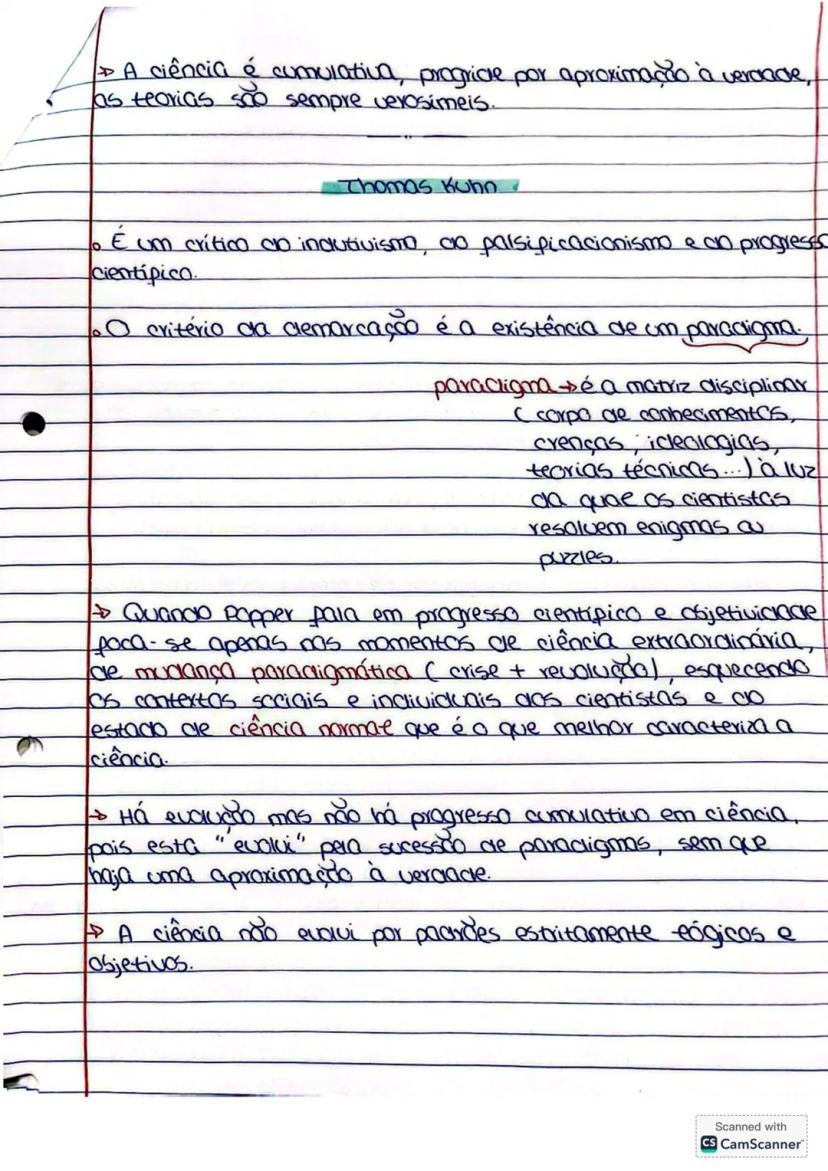 → A ciência é cumulativa, progride por aproximação à verdade,
as teorias são sempre verosímeis.
Thomas Kuhn
• É um crítico do indutivismo, do falsificacionismo e do progresso
científico.
• O critério da demarcação é a existência de um paradigma.
paradigma → é a matriz disciplinar
(corpo de conhecimentos,
crenças, ideologias,
teorias técnicas...) à luz
da qual os cientistas
resolvem enigmas ou
puzzles.
→ Quando Popper fala em progresso científico e objetividade
foca-se apenas nos momentos de ciência extraordinária,
de mudança paradigmática (crise + revolução), esquecendo
os contextos sociais e individuais dos cientistas e do
estado de ciência normal que é o que melhor caracteriza a
ciência.
→ Há evolução mas não há progresso cumulativo em ciência,
pois esta "evolui" pela sucessão de paradigmas, sem que
haja uma aproximação à verdade.
→ A ciência não evolui por padrões estritamente lógicos e
objetivos.
Scanned with
CS CamScanner